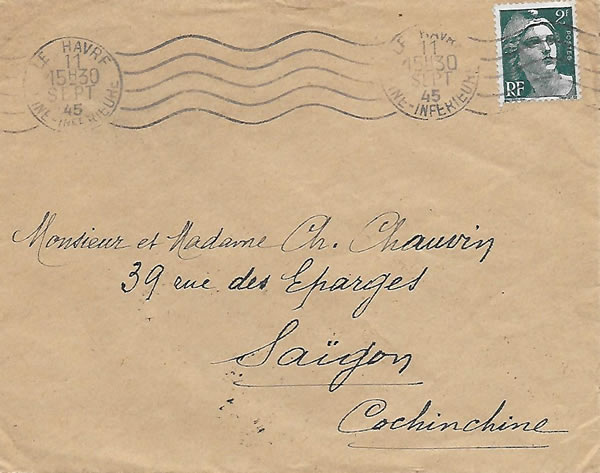 LE HAVRE
11
15H30
SEPT
45
INE-INFERIEURE
LE HAVR
11
15H30
SEPT
45
INE-INFERIEURE
2F
POSTES
RF
Monsieur et Madame Ch. Chauvin
39 rue des Eparges
Saïgon
Cochinchine